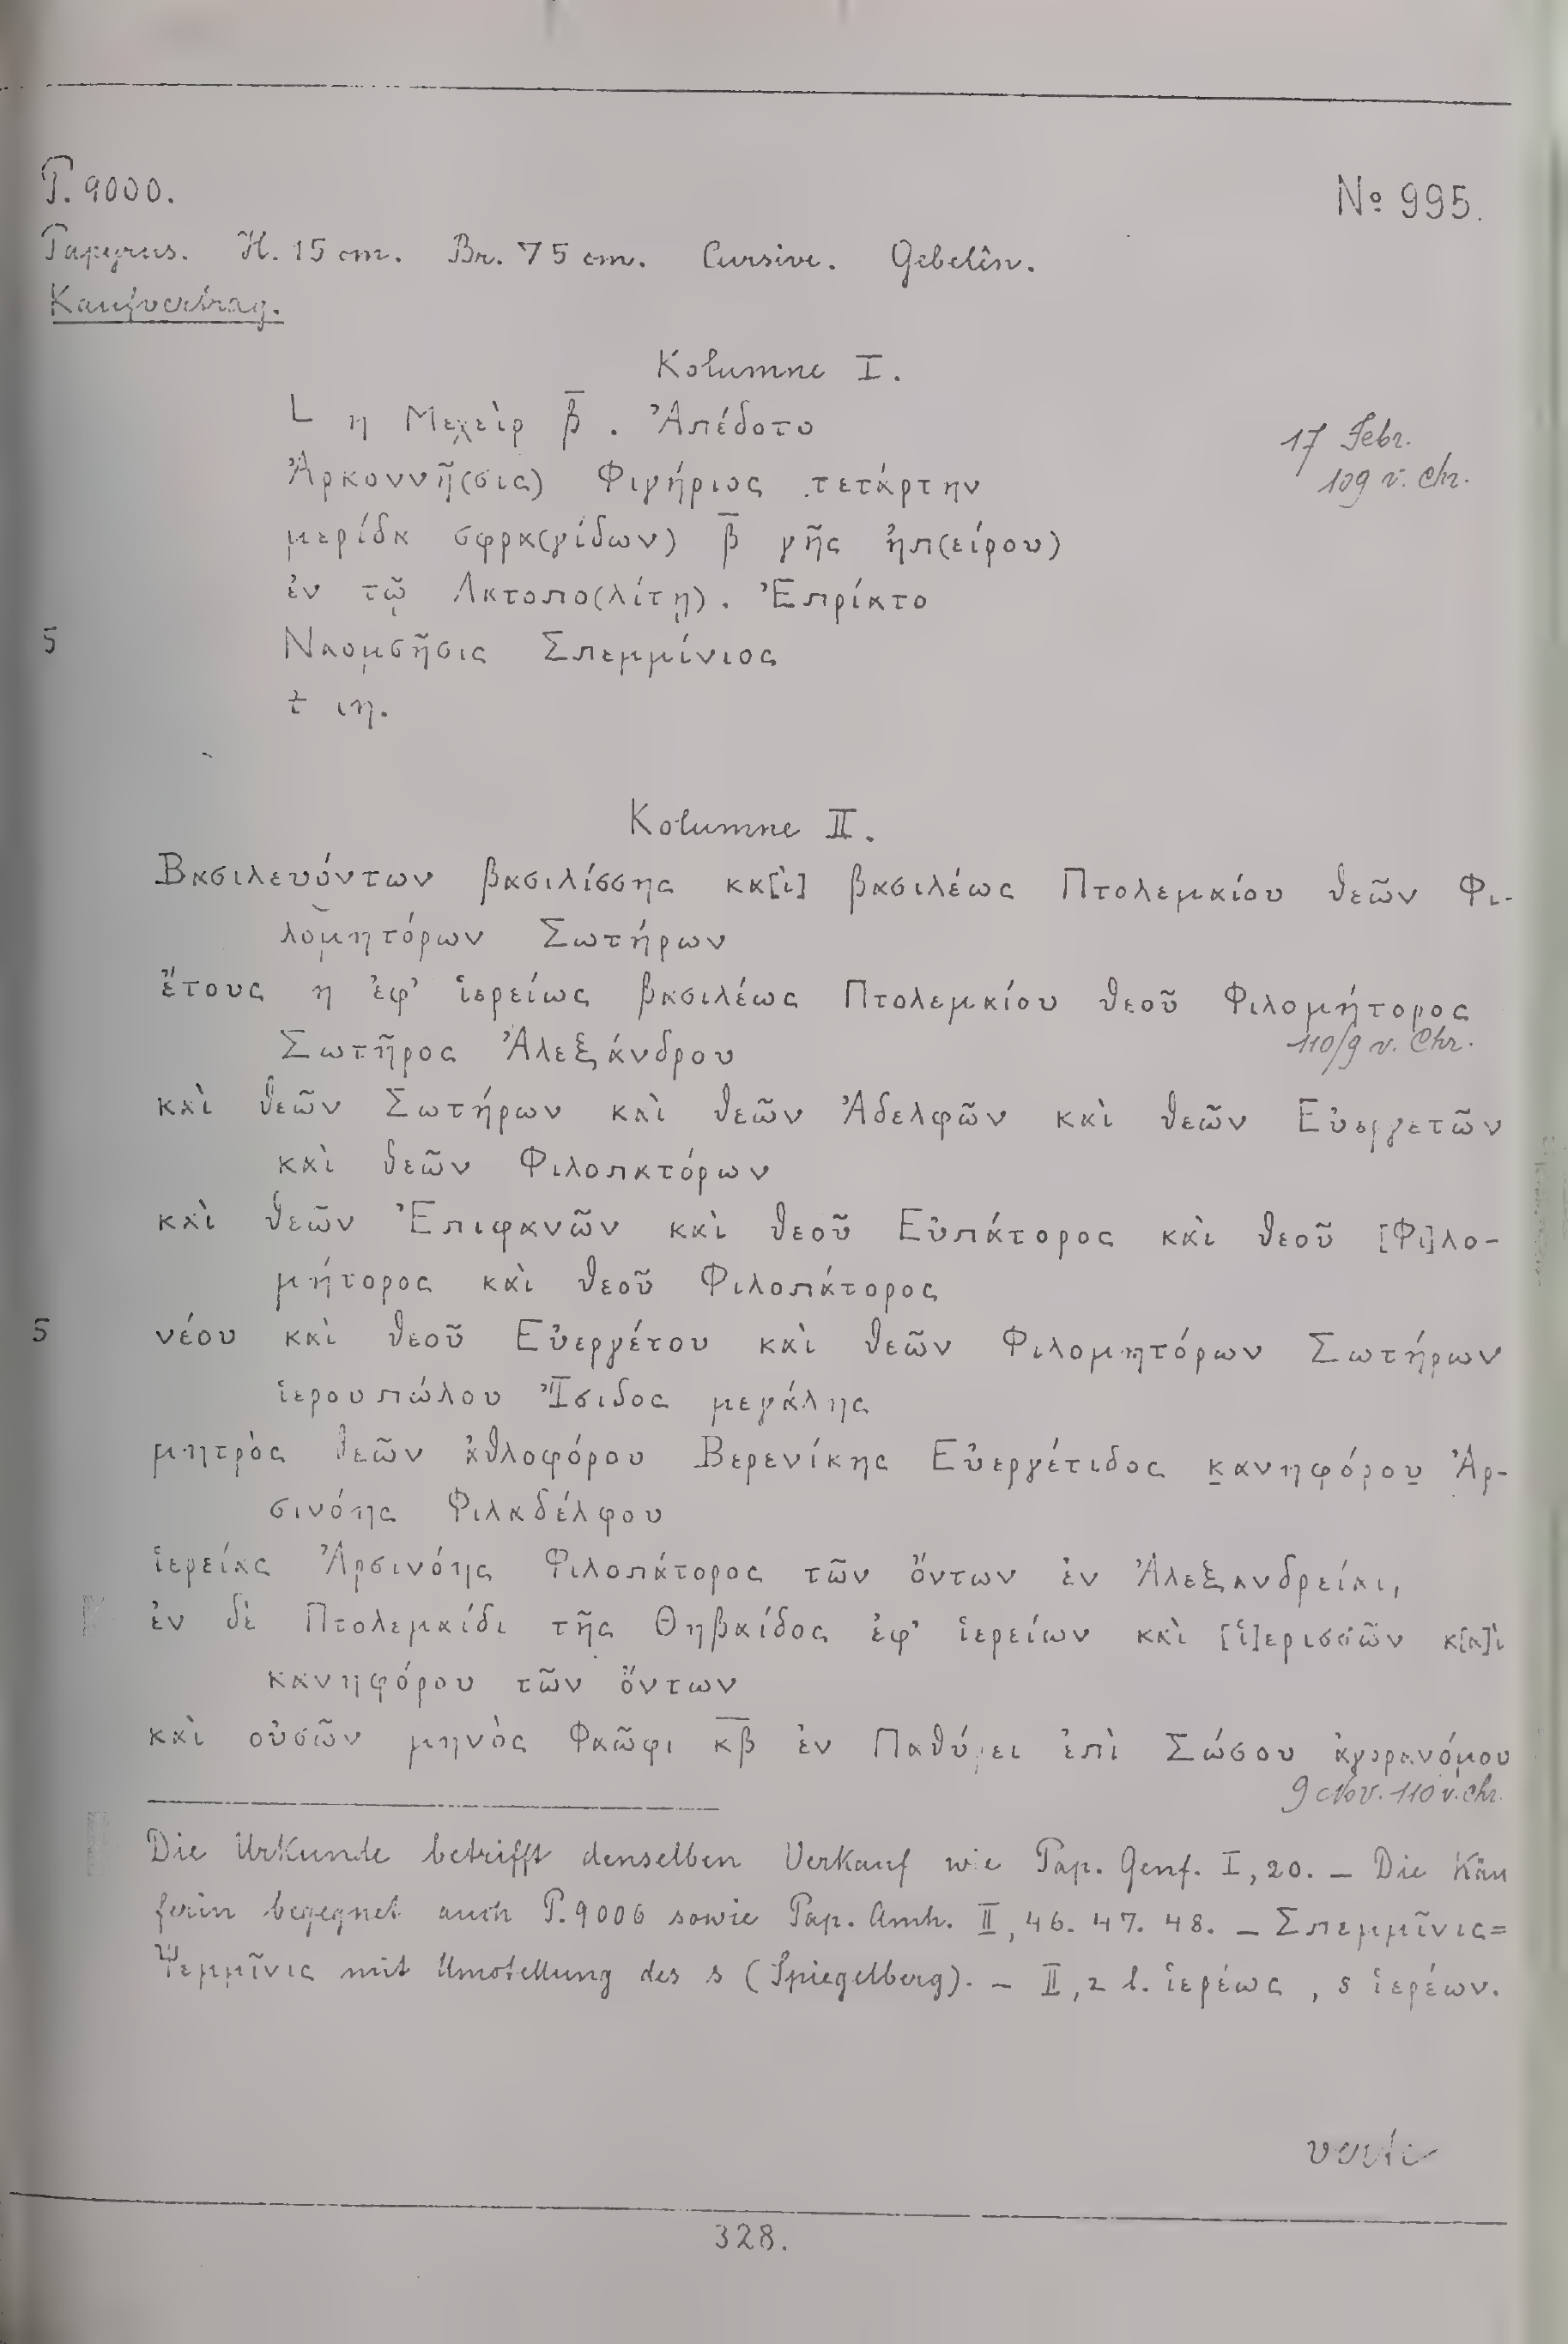 P. 9000. No 995.
Papyrus. H. 15 cm. Br. 75 cm. Cursive. Gebelên.
Kaufvertrag.
Kolumne I.
L η Μεχεὶρ β̅. Ἀπέδοτο
17 Febr.
Ἁρκοννῆ(σις) Φιγήριος τετάρτην
109 v. Chr.
μερίδα σφρα(γίδων) β̅ γῆς ἠπ(είρου)
ἐν τῷ Λατοπο(λίτῃ). Ἐπρίατο
5 Ναομσῆσις Σπεμμίνιος
ιη.
Kolumne II.
Βασιλευόντων βασιλίσσης κα[ὶ] βασιλέως Πτολεμαίου θεῶν Φι-
λομητόρων Σωτήρων
ἔτους η ἐφ' ἱερείως βασιλέως Πτολεμαίου θεοῦ Φιλομήτορος
Σωτῆρος Ἀλεξάνδρου
110/9 v. Chr.
καὶ θεῶν Σωτήρων καὶ θεῶν Ἀδελφῶν καὶ θεῶν Εὐεργετῶν
καὶ θεῶν Φιλοπατόρων
καὶ θεῶν Ἐπιφανῶν καὶ θεοῦ Εὐπάτορος καὶ θεοῦ [Φι]λο-
μήτορος καὶ θεοῦ Φιλοπάτορος
5 νέου καὶ θεοῦ Εὐεργέτου καὶ θεῶν Φιλομητόρων Σωτήρων
ἱερουπώλου Ἴσιδος μεγάλης
μητρὸς θεῶν ἀθλοφόρου Βερενίκης Εὐεργέτιδος κ̲ανηφόρου̲ Ἀρ-
σινόης Φιλαδέλφου
ἱερείας Ἀρσινόης Φιλοπάτορος τῶν ὄντων ἐν Ἀλεξανδρείαι,
ἐν δὲ Πτολεμαίδι τῆς Θηβαίδος ἐφ' ἱερείων καὶ [ἱ]ερισσῶν κ[α]ὶ
κανηφόρου τῶν ὄντων
καὶ οὐσῶν μηνὸς Φαῶφι κ̅β̅ ἐν Παθύρει ἐπὶ Σώσου ἀγορανόμου
9 Nov. 110 v. Chr.
Die Urkunde betrifft denselben Verkauf wie Pap. Genf. I, 20. – Die Käu
ferin begegnet auch P. 9006 sowie Pap. Amh. II, 46. 47. 48. – Σπεμμῖνις=
Ψεμμῖνις mit Umstellung des s (Spiegelberg). – II, 2 l. ἱερέως, 8 ἱερέων.
verte
328.